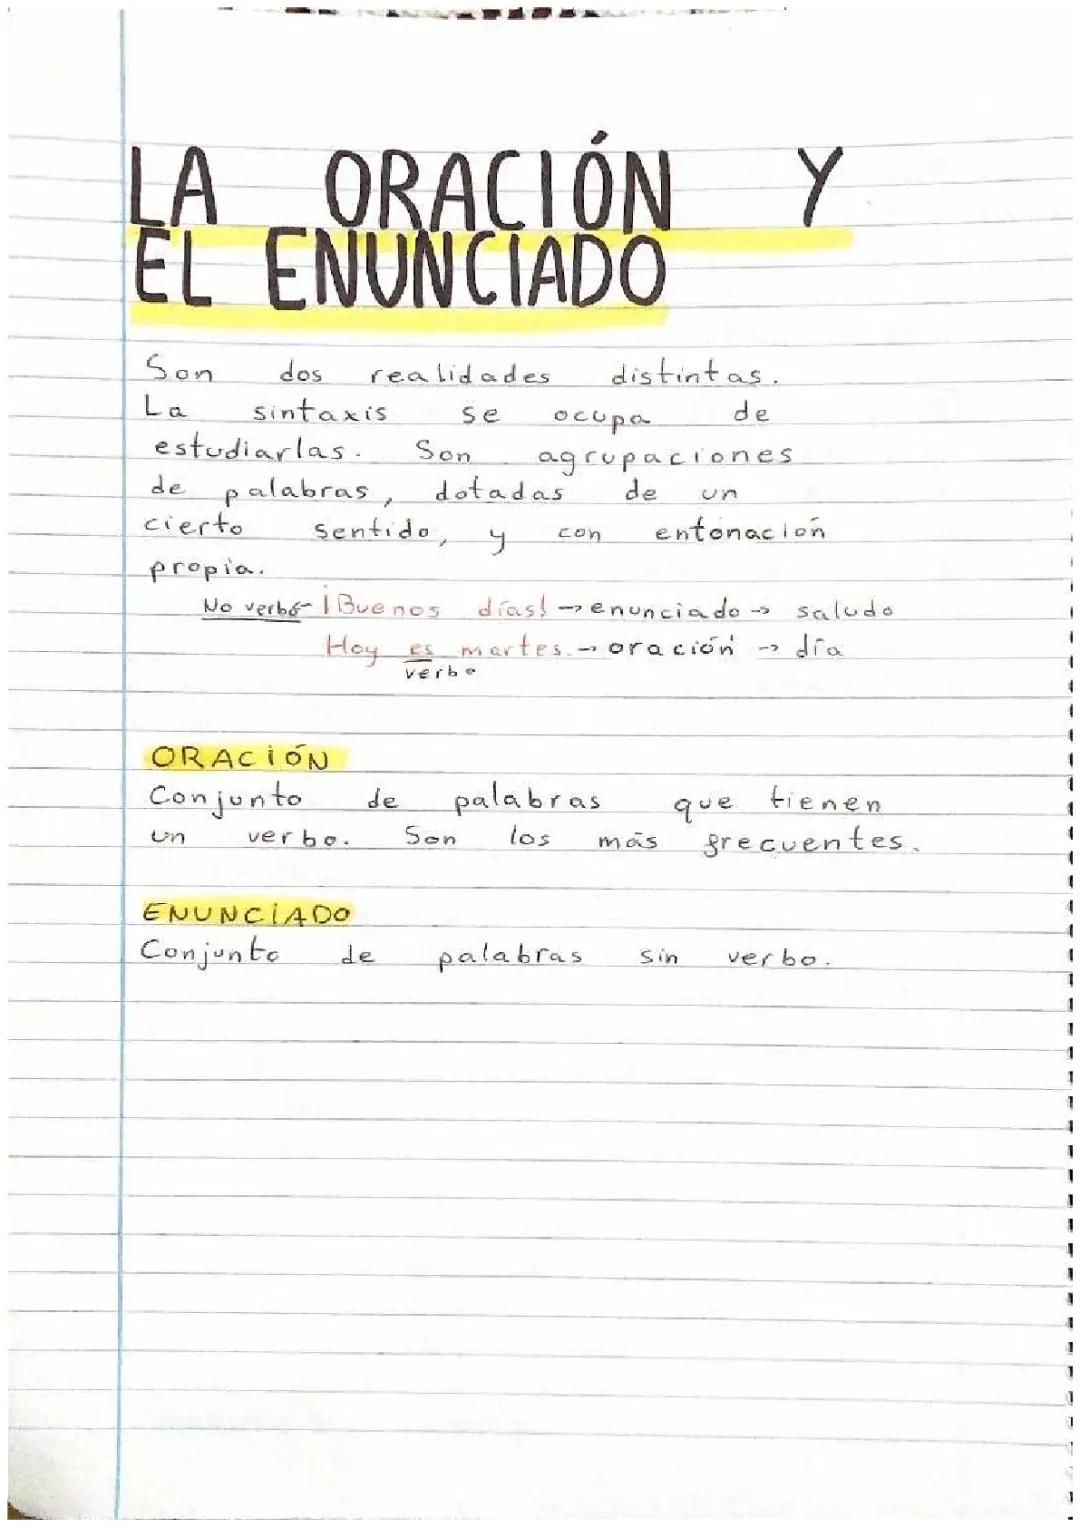 LA ORACIÓN Y
EL ENUNCIADO
Son dos realidades distintas.
La sintaxis se ocupa de
estudiarlas. Son agrupaciones
de palabras, dotadas de un
cierto sentido, y con entonación
propia.
No verbo - ¡Buenos días! → enunciado → saludo
Hoy es martes. → oración → día
verbo
ORACIÓN
Conjunto de palabras que tienen
un verbo. Son los más frecuentes.
ENUNCIADO
Conjunto de palabras sin verbo.